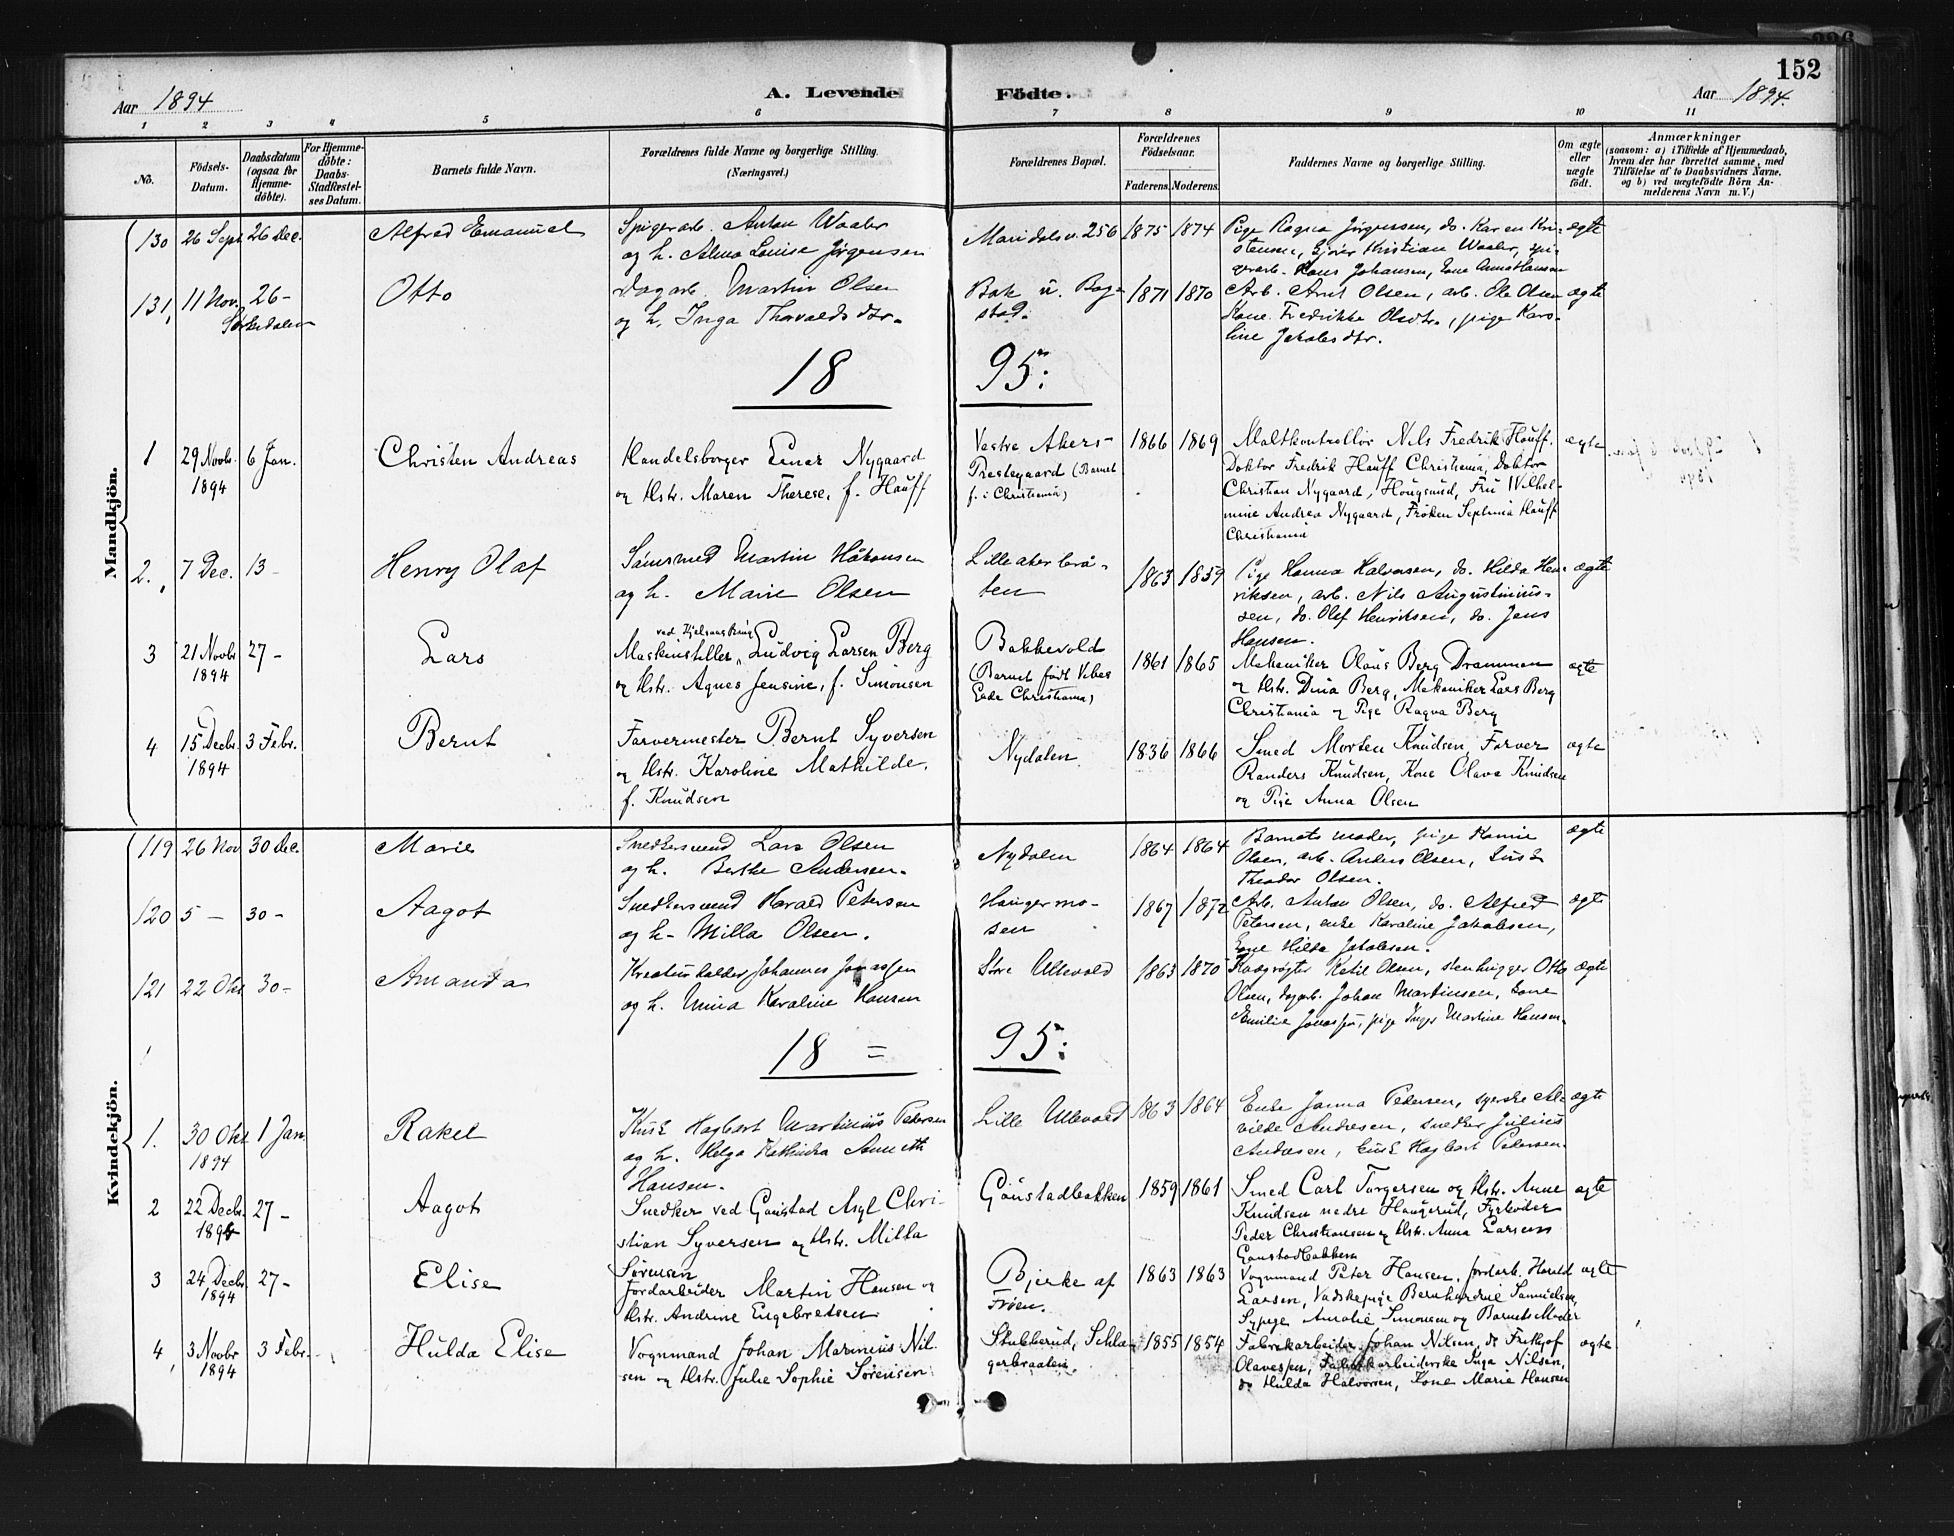 152
Aar 1894
A. Levende Födte.
Aar 1894.
1 2 3 4 5 6 7 8 9 10 11
No.
Födsels-Datum.
Daabsdatum (ogsaa for Hjemme-döbte).
For Hjemme-döbte: Daabs-Stadfæstel-ses Datum.
Barnets fulde Navn.
Forældrenes fulde Navne og borgerlige Stilling. (Næringsvei.)
Forældrenes Bopæl.
Forældrenes Födselsaar.
Faderens. Moderens.
Faddernes Navne og borgerlige Stilling.
Om ægte eller uægte födt.
Anmærkninger
(saasom: a) i Tilfælde af Hjemmedaab,
hvem der har forrettet samme, med
Tilföielse af to Daabsvidners Navne,
og b) ved uægtefödte Börn An-
melderens Navn m. V.)
Mandkjön.
130 26 Sept. 26 Dec. Alfred Emanuel
Spigerarb. Anton Waaler
og h. Alma Louise Jörgensen
Maridalsv. 256 1875 1874
Pige Ragna Jörgensen, do. Karen Kri-
stensen, Kristian Waaler, spi-
gerarb. Hans Johansen, Kone Anna Hansen
ægte
131, 11 Nov. 26 –
Sörkedalen
Otto
Dagarb. Martin Olsen
og h. Inga Thorvaldsdtr.
Bak u. Bog-
stad.
1871 1870
Arb. Arnt Olsen, arb. Ole Olsen
Kone Fredrikke Olsdtr., pige Karo-
line Jakobsdtr.
ægte
18 95:
1 29 Novb. 1894 6 Jan. Christen Andreas
Handelsborger Einar Nygaard
og Hstr. Maren Therese, f. Hauff
Vestre Akers
Prestegaard (Barnet
f. i Christiania)
1866 1869
Maltkontrollör Nils Fredrik Hauff.
Doktor Fredrik Hauff Christiania, Doktor
Christian Nygaard, Hougsund, Fru Wilhel-
mine Andrea Nygaard, Fröken Septima Hauff
Christiania
ægte
2. 7 Dec. 13 – Henry Olaf
Martin Håkonsen
og h. Marie Olsen
Lilleakerbrå-
ten
1863 1859
Pige Hanna Halvorsen, do. Hilda Hen-
riksen, arb. Nils Augustinius-
sen, do. Olef Henriksen, do. Jens
Hansen.
ægte
3 21 Novbr 1894 27 – Lars
Maskinstiller Ludvig Larsen Berg
og Hstr. Agnes Jensine, f. Simonsen
Bakkevold
(Barnet födt Vibes
Gade Christiania)
1861 1865
Mekaniker Olaus Berg Drammen
og Hstr. Dina Berg, Mekaniker Lars Berg
Christiania og Pige Ragna Berg
ægte
4 15 Decbr. 1894 3 Febr. Bernt
Farvermester Bernt Syversen
og Hstr. Karoline Mathilde,
f. Knudsen
Nydalen
1836 1866
Smed Morten Knudsen, Farver
Randers Knudsen, Kone Olava Knudsen
og Pige Anna Olsen
ægte
Kvindekjön.
119 26 Nov 30 Dec. Marie
Snedkersvend Lars Olsen
og h. Berthe Andersen.
Nydalen
1864 1864
Barnets moder, pige
Olsen, arb. Anders Olsen, Kusk
Theodor Olsen.
ægte
120 5 – 30 – Aagot
Snedkersvend Harald Petersen
og h – Milla Olsen.
Haugermo-
sen
1867 1872
Arb. Anton Olsen, do. Alfred
Petersen, enke Karoline Jakobsen,
Kone Hilda Jakobsen.
ægte
121 22 Okt 30 – Amanda
Kreaturhandler Johannes Jonassen
og h. Karoline Hansen
Store Ullevold
1863 1870
Ketil Olsen, stenhugger Otto
Olsen, dagarb. Johan Martinsen, Kone
Emilie Jonassen, pige Inga Martine Hansen.
ægte
18 = 95:
1. 30 Okt 1894 1 Jan. Rakel
Kusk Hagbart Martinius Petersen
og h. Helga Kathinka Annette
Hansen.
Lille Ullevold
1863 1864
Enke Janna Pedersen, syerske Al-
vilde Andresen, snedker Julius
Andresen, Kusk Hagbart Petersen.
ægte
2 22 Decbr. 1894 27 – Aagot
Snedker ved Gaustad Asyl Chri-
stian Syversen og Hstr. Milla
Sörensen
Gaustadbakken
1859 1861
Smed Carl Torgersen og Hstr. Anne
Knudsen nedre Haugerud, Fyrböder
Peder Christiansen og Hstr. Anna Larsen
Gaustadbakken
ægte
3 24 Decbr. 1894 27 – Elise
Jordarbeider Martin Hansen og
Hstr. Andrine Engebretsen
Bjerke af
Fröen.
1863 1863
Vognmand Peter Hansen, jordarb. Harald
Larsen, Vaskepige Bernhardine Samuelsen,
Sypige Amalie Simonsen og Barnets Moder
ægte
4, 3 Novbr 1894 3 Febr. Hulda Elise
Vognmand Johan Marinius Nil-
sen og Hstr. Julie Sophie Sörensen
Stubberud, Schla-
gerbraaten.
1855 1854
Fabrikarbeider Johan Nilsen, do Frithjof
Olavesen, Fabrikarbeiderske Inga Nilsen,
do Hulda Halvorsen, Kone Marie Hansen
ægte